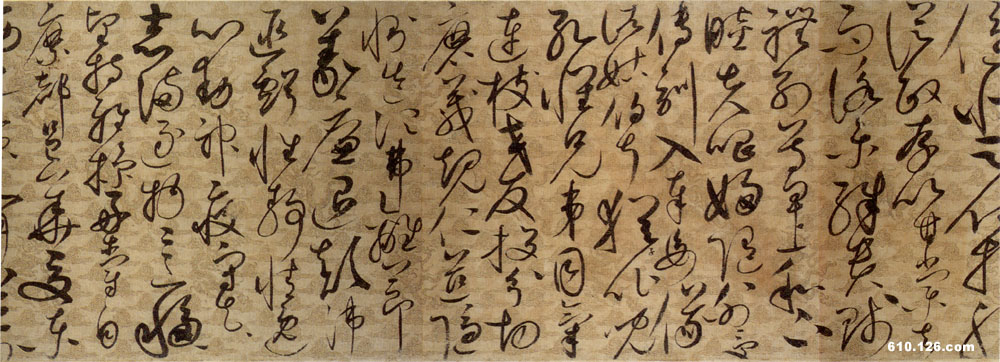 優登仕攝職
從政存以甘棠去
而益詠樂殊貴賤
禮別尊卑上和下
睦夫唱婦隨外受
傅訓入奉母儀
諸姑伯叔猶子比兒
孔懷兄弟同氣
連枝交友投分切
磨箴規仁慈隱
惻造次弗離節
義廉退顛沛
匪虧性靜情逸
心動神疲守真
志滿逐物意移
堅持雅操好爵自
縻都邑華夏東
610.126.com